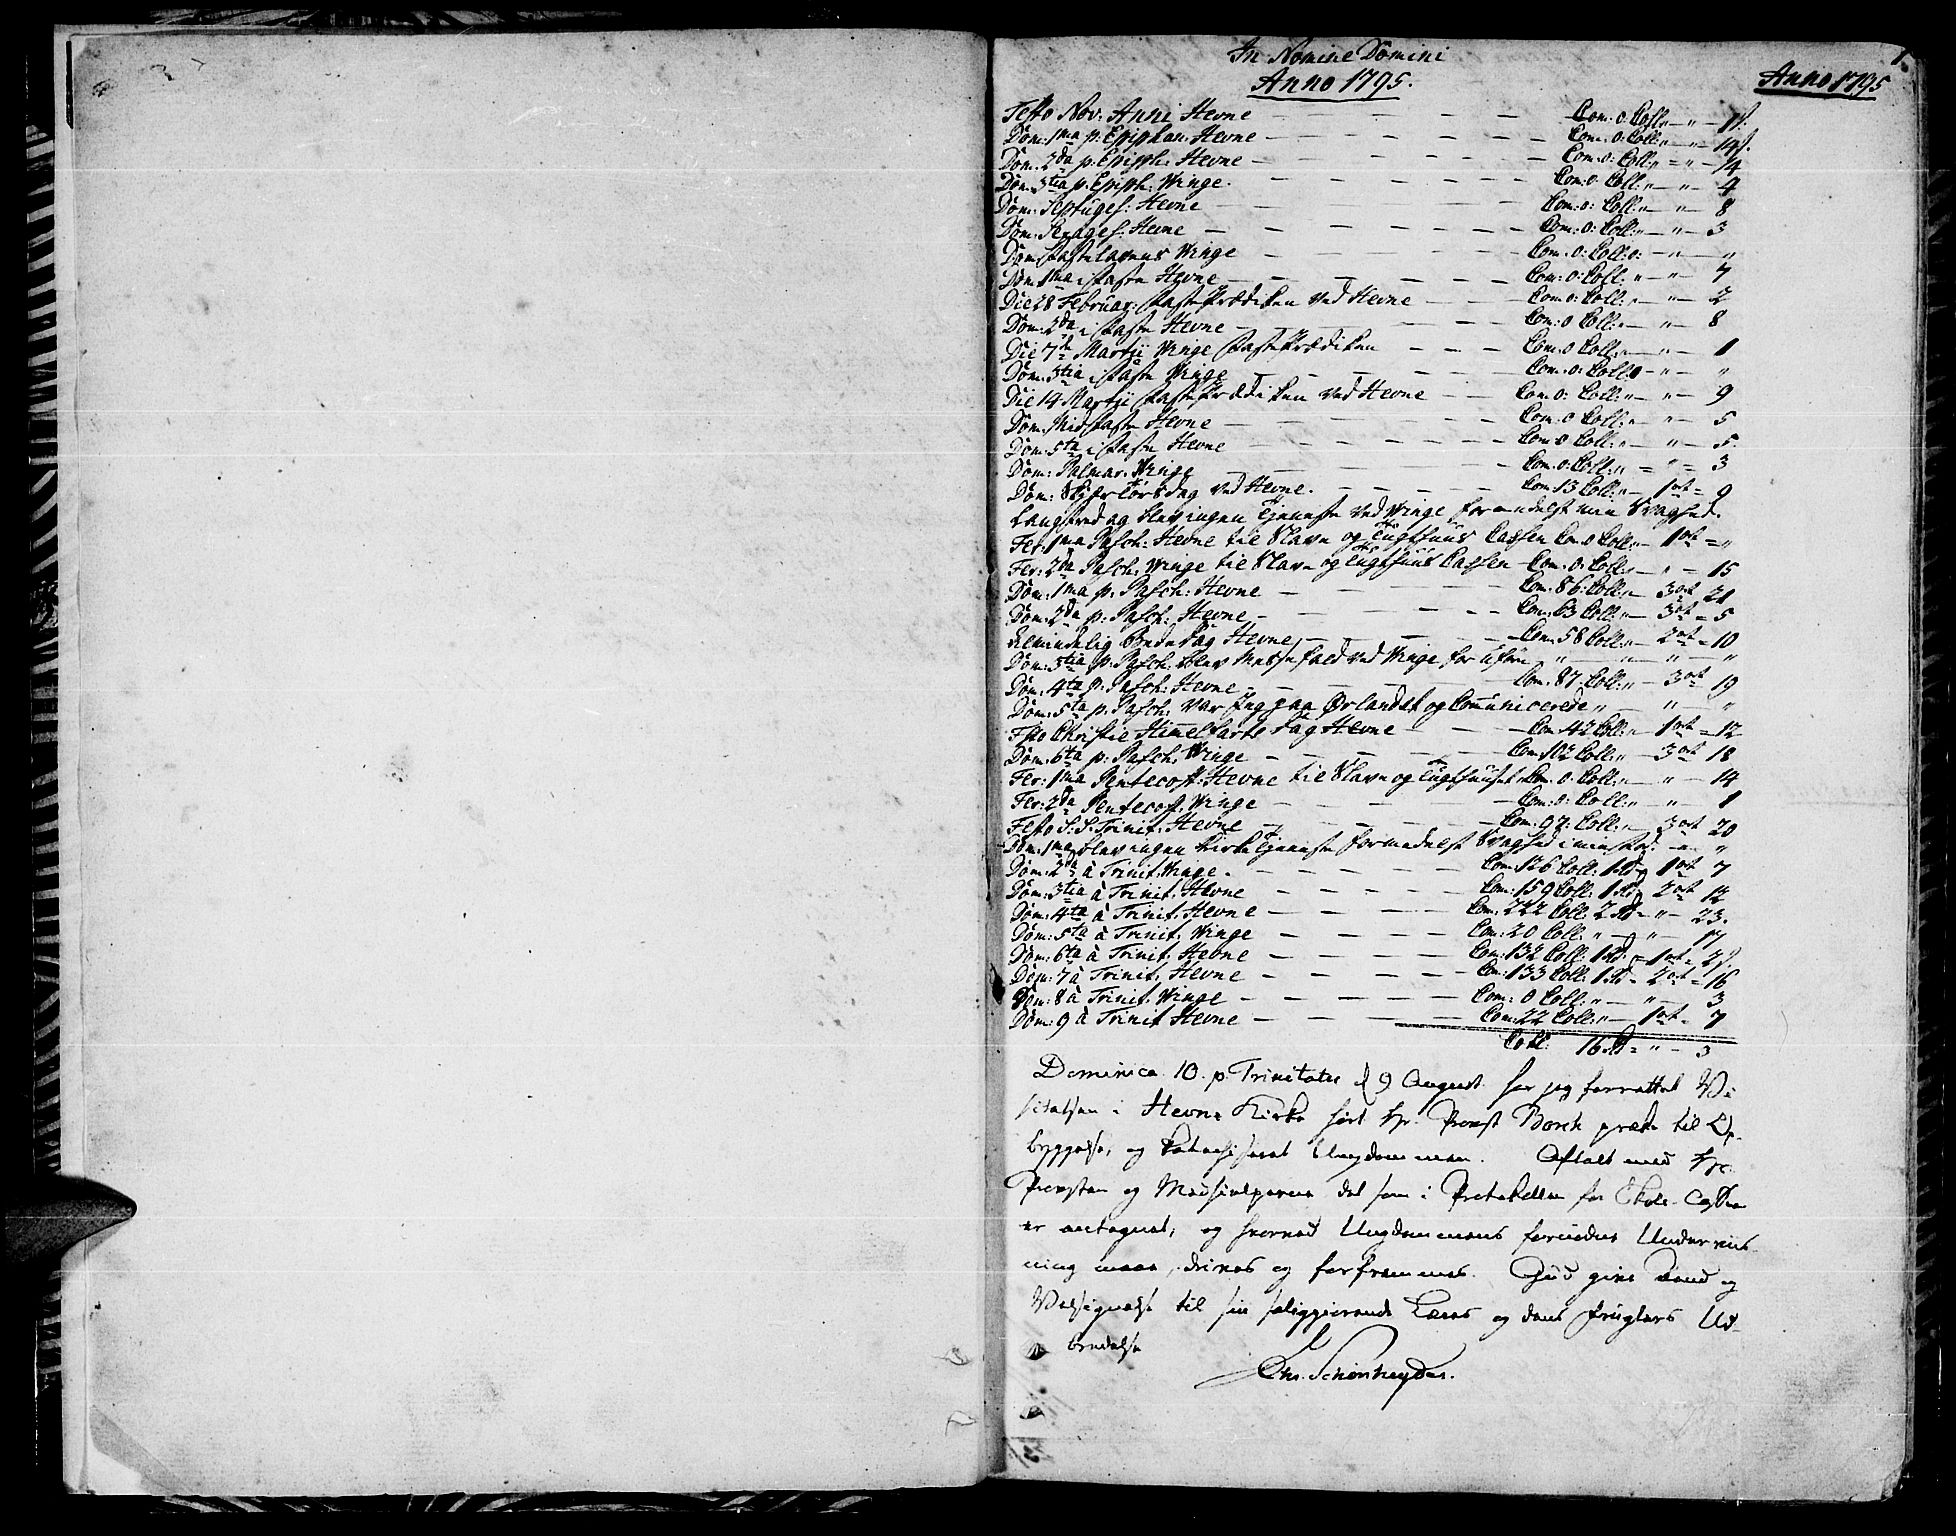 1.
In Nomine Domini
Anno 1795. Anno 1795
Festo Nov. Anni Hevne — Com. 0. Coll. „ — „ — 1 s.
Dom: 1ma p. Epiphan: Hevne — Com. 0: Coll: „ — „ — 14 s.
Dom. 2da p. Epiph: Hevne — Com. 0: Coll: „ = „ — 4
Dom. 3tia p. Epiph: Winge. — Com: 0 Coll: „ — „ — 4
Dom: Septuges: Hevne — Com: 0: Coll: „ — „ — 8
Dom: Sexages: Hevne — Com: 0: Coll: „ — „ — 3
Dom Fastelavens Winge — Com: 0: Coll: 0: — „ — „
Dom 1ma i Faste Hevne — Com: 0: Coll: „ — „ — 7
Die 28 Februar: Faste Prædiken ved Hevne — Com 0: Coll: „ — „ — 2
Dom: 2da i Faste Hevne — Com: 0 Coll: „ — „ — 8
Die 7de Martji Winge Faste Prædiken — Com. 0 Coll: „ — „ — 1
Dom: 3tia i Faste Winge — Com. 0: Coll: 0 — „ — „
Die 14 Martji Faste Prædiken ved Hevne — Com. 0: Coll: „ — „ — 9
Dom: Midfaste Hevne — Com. 0 Coll: „ — „ — 5
Dom: 5ta i Faste Hevne — Com: 0 Coll: „ — „ — 5
Dom: Palmar. Winge — Com. 0: Coll: „ = „ = 3
Dom: Skjærtorsdag ved Hevne. — Com: 13 Coll: „ — 1 ort = 9
Langfredag blev ingen Tjeneste ved Winge formedelst min Svaghed.
Fer: 1ma Pasch: Hevne til Slave og Tugthuus Cassen Com. 0 Coll: „ — 1 ort = „
Fer: 2da Pasch: Winge til Slave og Tugthuus Cassen — Com. 0: Coll: „ — „ = 15
Dom: 1ma p. Pasch: Hevne — Com. 86: Coll: „ — 3 ort 21
Dom: 2da p: Pasch: Hevne — Com. 63 Coll: „ — 3 ort = 5
Almindelig Bededag Hevne — Com. 58 Coll: „ — 2 ort = 10
Dom: 3tia p. Pasch. blev Messefald ved Winge for Uføre „ — „ — „ — „
Dom: 4ta p. Pasch: Hevne — Com. 87: Coll: „ — 3 ort 19
Dom: 5ta p. Pasch: var jeg paa Ørlandet og Communicerede „ — „ — „
Festo Christi Himmelfarts dag Hevne — Com 42 Coll: „ — 1 ort = 12
Dom: 6ta p: Pasch. Winge — Com. 102 Coll: „ — 3 ort 18
Fer: 1ma Pentecost: Hevne til Slave og Tugthuuset Com. 0: Coll: „ — „ — 14
Fer: 2da Pentecost. Winge — Com: 0: Coll: „ — „ — 1
Festo S: S. Trinit: Hevne — Com. 97: Coll: „ — 3 ort 20
Dom: 1ma blev ingen Kirke Tjeneste formedelst Svaghed — „ — „
Dom: 2da à Trinit: Winge. — Com: 126 Coll: 1 Rd. 1 ort 7
Dom: 3tia à Trinit. Hevne — Com: 159 Coll: 1 Rd. 2 ort 12
Dom: 4ta à Trinit. Hevne — Com: 222 Coll: 2 Rd = „ — 23.
Dom: 5ta à Trinit: Winge — Com: 20 Coll: „ — „ — 17
Dom: 6ta à Trinit. Hevne — Com: 132 Coll: 1 Rd. = 1 ort = 2 s.
Dom: 7 à Trinit. Hevne — Com: 133 Coll: 1 Rd = 2 ort = 16
Dom: 8 à Trinit. Winge — Com: 0 Coll: „ — „ — 3
Dom: 9 à Trinit Hevne — Com: 22 Coll: „ — 1 ort = 7
Coll: 16 Rd = „ — 3
Dominica 10. p. Trinitatis d 9 August har jeg forrettet Vi-
sitatsen i Hevne Kirke hørt Hr. Provst Borch præke til Op-
byggelse, og Catechiseret Ungdommen. Aftalt med Hr.
Provsten og Medhielperne det som i Protokollen for Skole-Cassen
er antegnet, og hvorved Ungdommens fornødne Underviis-
ning maae drives og forfremmes. Gud give Aand og
Velsignelse til sin saliggiørende Læres og dens Frugters Ud-
bredelse
Chr. Schønheyder.